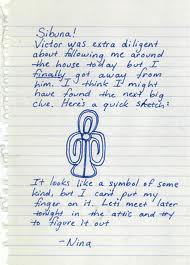 Sibuna!
Victor was extra diligent
about following me around
the house today but I
finally got away from
him. I think I might
have found the next big
clue. Here's a quick sketch:
It looks like a symbol of some
kind, but I can't put my
finger on it. Lets meet later
tonight in the attic and try
to figure it out
-Nina